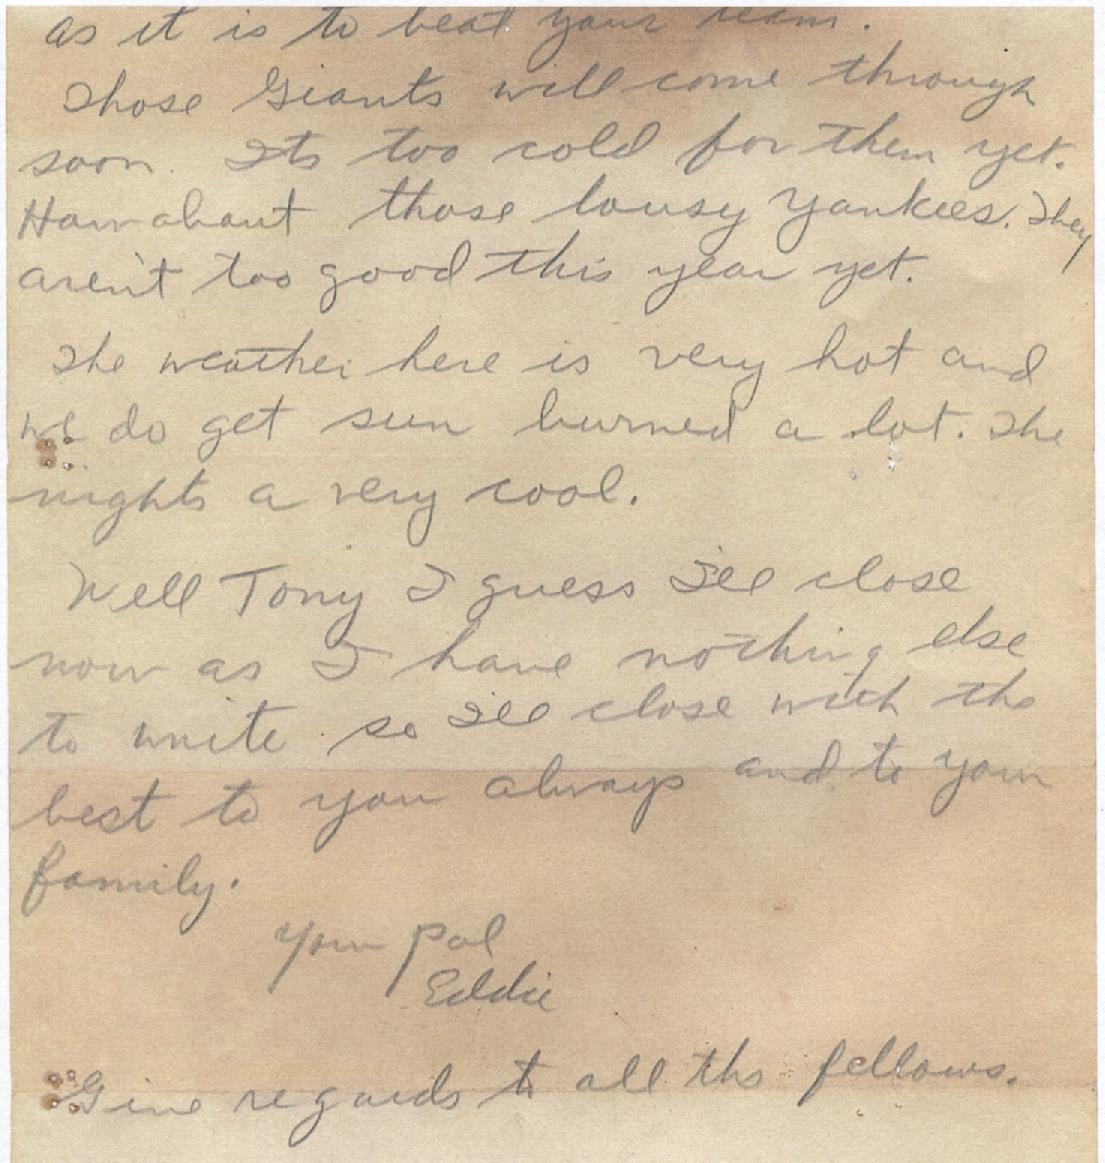 as it is to beat your team.
Those Giants will come through
soon. Its too cold for them yet.
How about those lousy Yankees. They
aren't too good this year yet.
The weather here is very hot and
we do get sun burned a lot. The
nights a very cool.
Well Tony I guess I'll close
now as I have nothing else
to write so I'll close with the
best to you always and to your
family.
Your pal
Eddie
Give regards to all the fellows.